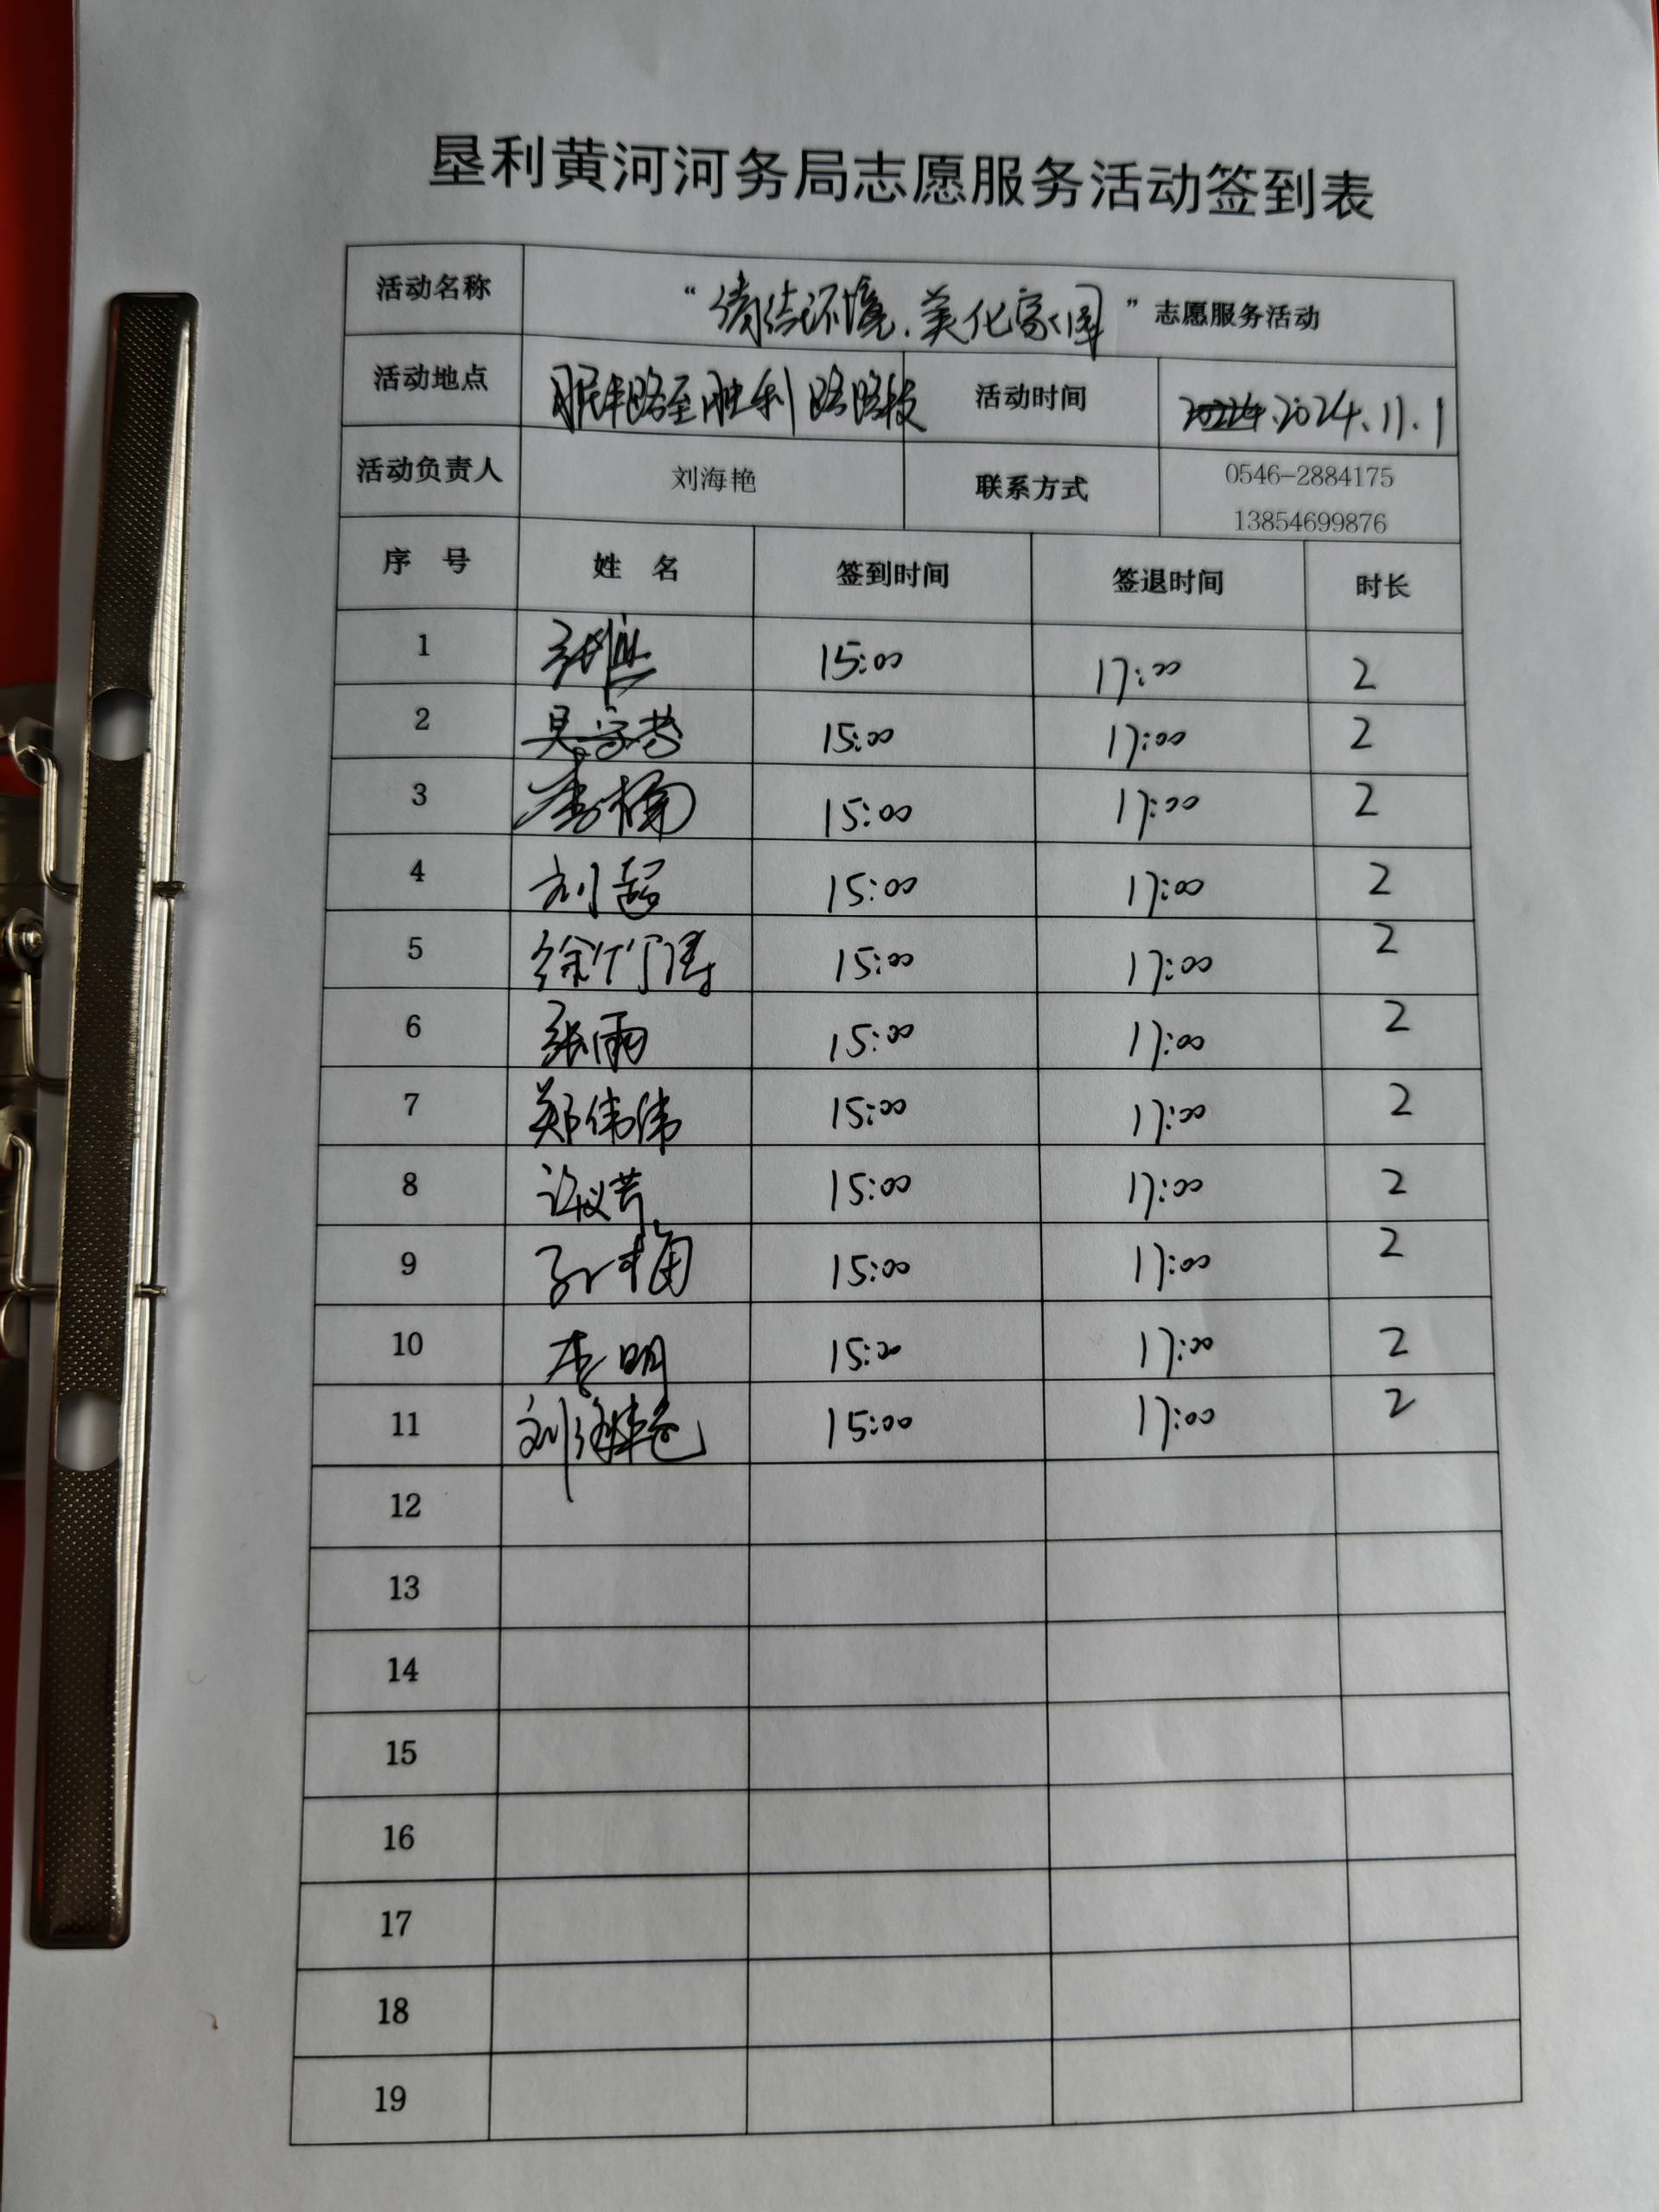 垦利黄河河务局志愿服务活动签到表
活动名称 “清洁环境.美化家园”志愿服务活动
活动地点 胜利路路段 活动时间 2024.11.1
活动负责人 刘海艳 联系方式 0546-2884175
13854699876
序 号 姓 名 签到时间 签退时间 时长
1 15:00 17:00 2
2 15:00 17:00 2
3 李楠 15:00 17:00 2
4 刘超 15:00 17:00 2
5 徐竹涛 15:00 17:00 2
6 张雨 15:00 17:00 2
7 郑伟伟 15:00 17:00 2
8 15:00 17:00 2
9 孙梅 15:00 17:00 2
10 李明 15:00 17:00 2
11 刘海艳 15:00 17:00 2
12
13
14
15
16
17
18
19